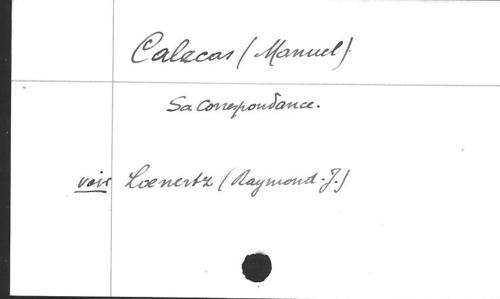 Calecas (Manuel)
Sa correspondance.
voir Loenertz (Raymond-J.)